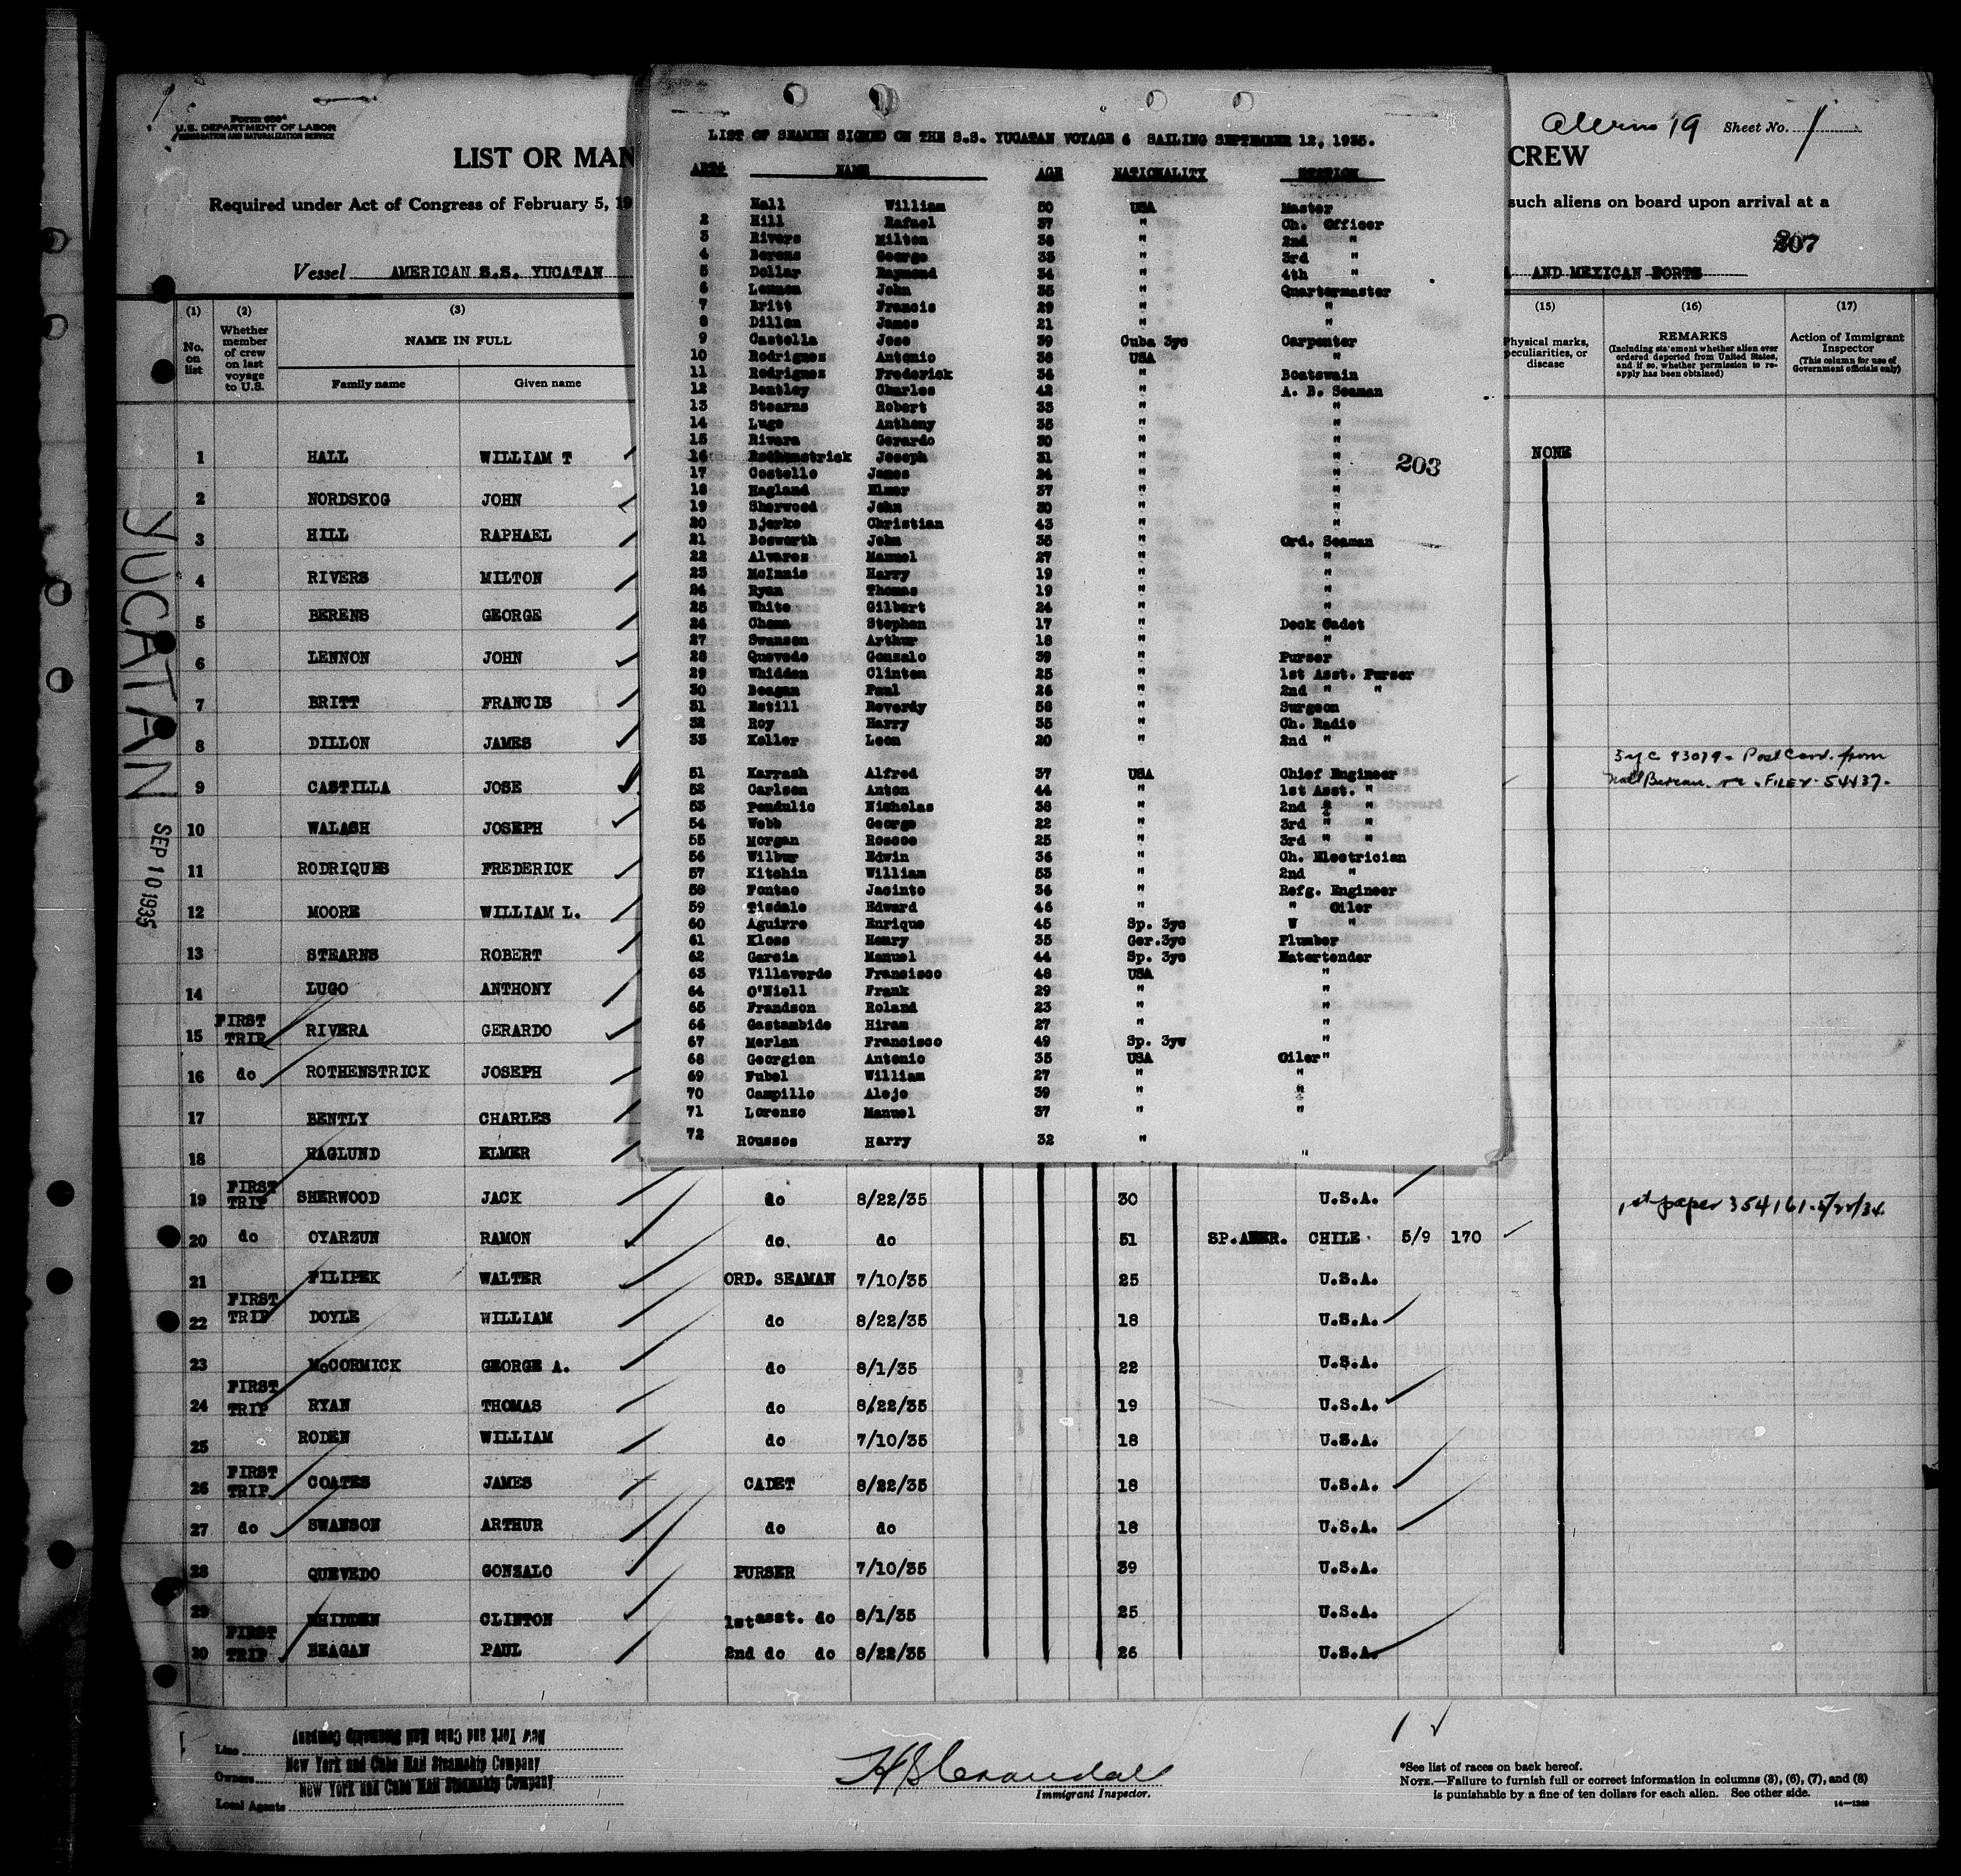 Form 689
U.S. DEPARTMENT OF LABOR
IMMIGRATION AND NATURALIZATION SERVICE
LIST OR MAN
Required under Act of Congress of February 5, 19
Vessel AMERICAN S.S. YUCATAN
19 Sheet No. 1
CREW
such aliens on board upon arrival at a
207
AND MEXICAN PORTS
(1) (2) (3)
No. on list
Whether member of crew on last voyage to U.S.
NAME IN FULL
Family name Given name
(15) (16) (17)
Physical marks, peculiarities, or disease
REMARKS
(Including statement whether alien ever ordered deported from United States, and if so, whether permission to reapply has been obtained)
Action of Immigrant Inspector
(This column for use of Government officials only)
LIST OF SEAMEN SIGNED ON THE S.S. YUCATAN VOYAGE 6 SAILING SEPTEMBER 12, 1935.
ART# NAME AGE NATIONALITY POSITION
Hall William 50 USA Master
2 Hill Rafael 37 " Ch. Officer
3 Rivers Milton 38 " 2nd "
4 Berens George 33 " 3rd "
5 Dollar Raymond 34 " 4th "
6 Lennon John 35 " Quartermaster
7 Britt Francis 29 " "
8 Dillon James 21 " "
9 Castella Jose 39 Cuba 3yc Carpenter
10 Rodriguez Antonio 38 USA "
11 Rodriguez Frederick 36 " Boatswain
12 Bentley Charles 42 " A. B. Seaman
13 Stearns Robert 33 " "
14 Lugo Anthony 35 " "
15 Rivera Gerardo 30 " "
16 Rothenstrick Joseph 31 " "
17 Costello James 24 " "
18 Hagland Elmer 37 " "
19 Sherwood John 30 " "
20 Bjerke Christian 43 " "
21 Bosworth John 35 " Ord. Seaman
22 Alvarez Manuel 27 " "
23 McInnis Harry 19 " "
24 Ryan Thomas 19 " "
25 White Gilbert 24 " "
26 Chema Stephen 17 " Deck Cadet
27 Swanson Arthur 18 " "
28 Quevedo Gonzalo 39 " Purser
29 Whidden Clinton 25 " 1st Asst. Purser
30 Beagan Paul 26 " 2nd " "
31 Estill Reverdy 58 " Surgeon
32 Roy Harry 35 " Ch. Radio
33 Keller Leon 20 " 2nd "
51 Karrash Alfred 37 USA Chief Engineer
52 Carlson Anton 44 " 1st Asst. "
53 Pendulic Nicholas 38 " 2nd " "
54 Webb George 22 " 3rd " "
55 Morgan Roscoe 25 " 3rd " "
56 Wilbur Edwin 36 " Ch. Electrician
57 Kitchin William 53 " 2nd "
58 Fontao Jacinto 36 " Refg. Engineer
59 Tisdale Edward 46 " " Oiler
60 Aguirre Enrique 45 Sp. 3yc W "
61 Kloss Henry 35 Ger.3yc Plumber
62 Garcia Manuel 44 Sp. 3yc Watertender
63 Villaverde Francisco 48 USA "
64 O'Niell Frank 29 " "
65 Frandson Roland 23 " "
66 Gastambide Hiram 27 " "
67 Merlan Francisco 49 Sp. 3yc "
68 Georgion Antonio 35 USA Oiler"
69 Fubel William 27 " "
70 Campillo Alejo 39 " "
71 Lorenzo Manuel 37 " "
72 Roussos Harry 32 " "
203
YUCATAN
SEP 10 1935
1 HALL WILLIAM T NONE
2 NORDSKOG JOHN
3 HILL RAPHAEL
4 RIVERS MILTON
5 BERENS GEORGE
6 LENNON JOHN
7 BRITT FRANCIS
8 DILLON JAMES
9 CASTILLA JOSE 3yc 43079 - Post Card. from
Bureau. re. FILE 54437.
10 WALASH JOSEPH
11 RODRIQUES FREDERICK
12 MOORE WILLIAM L.
13 STEARNS ROBERT
14 LUGO ANTHONY
15 FIRST TRIP RIVERA GERARDO
16 do ROTHENSTRICK JOSEPH
17 BENTLY CHARLES
18 HAGLUND ELMER
19 FIRST TRIP SHERWOOD JACK do 8/22/35 30 U.S.A. 1st paper 354161-
20 do OYARZUN RAMON do. do 51 SP.AMER. CHILE 5/9 170
21 FILIPEK WALTER ORD. SEAMAN 7/10/35 25 U.S.A.
22 FIRST TRIP DOYLE WILLIAM do 8/22/35 18 U.S.A.
23 McCORMICK GEORGE A. do 8/1/35 22 U.S.A.
24 FIRST TRIP RYAN THOMAS do 8/22/35 19 U.S.A.
25 RODEN WILLIAM do 7/10/35 18 U.S.A.
26 FIRST TRIP COATES JAMES CADET 8/22/35 18 U.S.A.
27 do SWANSON ARTHUR do do 18 U.S.A.
28 QUEVEDO GONZALO PURSER 7/10/35 39 U.S.A.
29 WHIDDEN CLINTON 1st asst. do 8/1/35 25 U.S.A.
30 FIRST TRIP BEAGAN PAUL 2nd do do 8/22/35 26 U.S.A.
Line New York and Cuba Mail Steamship Company
Owners New York and Cuba Mail Steamship Company
Local Agents New York and Cuba Mail Steamship Company
Immigrant Inspector.
*See list of races on back hereof.
NOTE.—Failure to furnish full or correct information in columns (3), (6), (7), and (8)
is punishable by a fine of ten dollars for each alien. See other side.